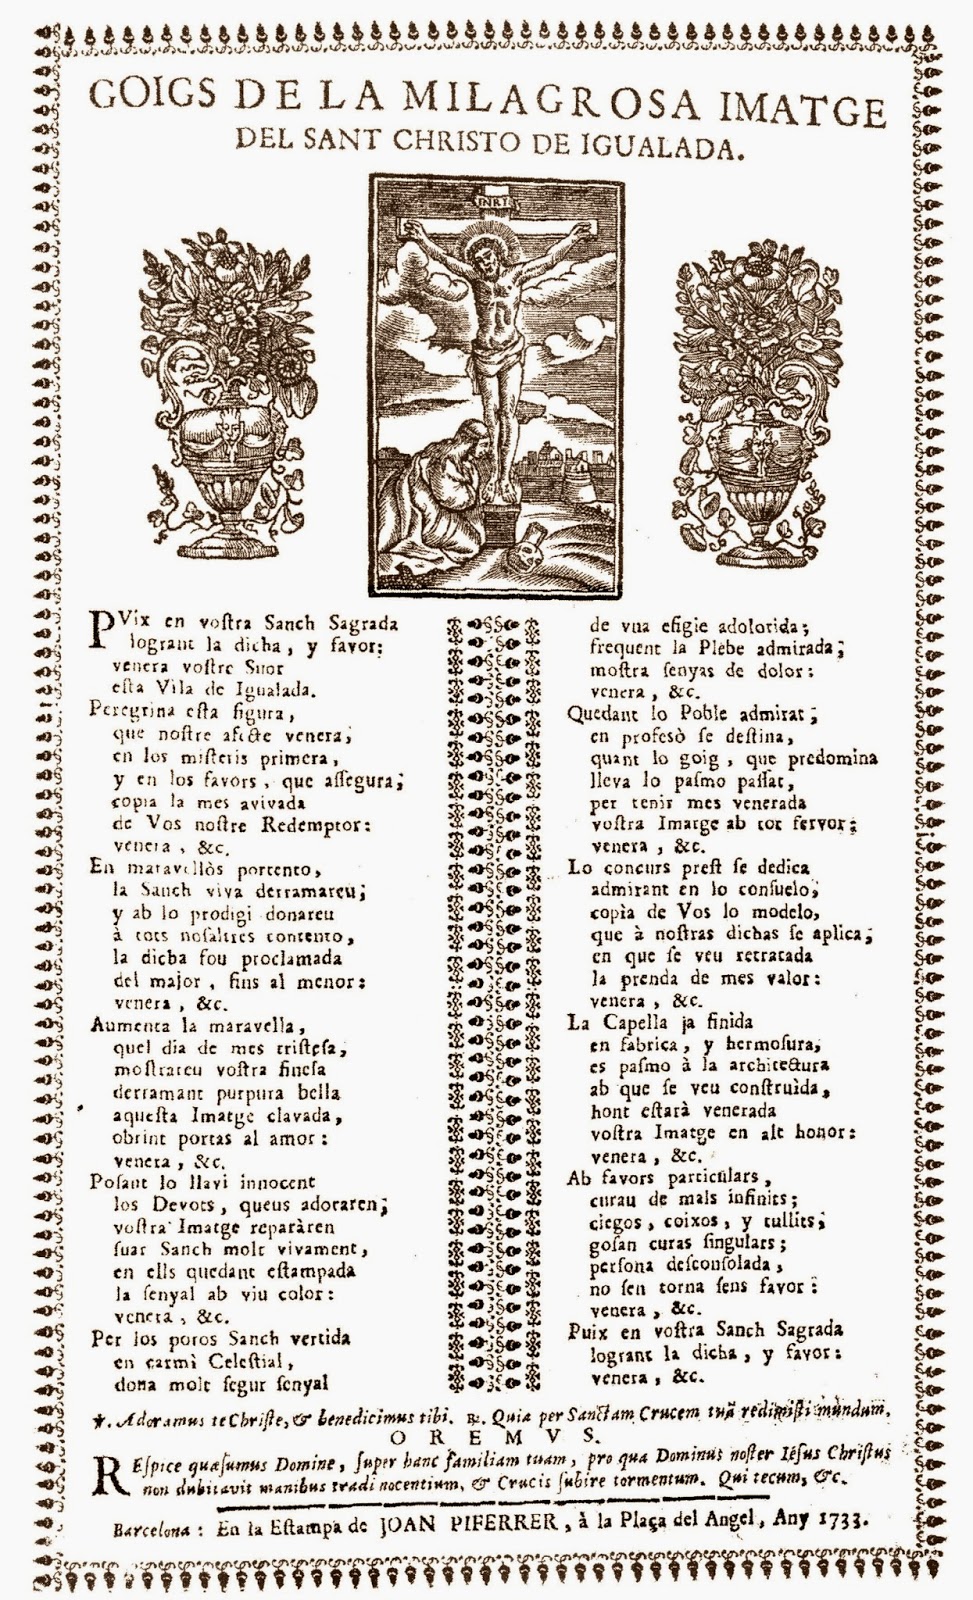 GOIGS DE LA MILAGROSA IMATGE
DEL SANT CHRISTO DE IGUALADA.
INRI
PVix en voſtra Sanch Sagrada
logrant la dicha, y favor:
venera voſtre Suor
eſta Vila de Igualada.
Peregrina eſta figura,
que noſtre afecte venera;
en los miſteris primera,
y en los favors, que aſſegura;
copia la mes avivada
de Vos noſtre Redemptor:
venera, &c.
En maravellòs portento,
la Sanch viva derramareu;
y ab lo prodigi donareu
à tots noſaltres contento,
la dicha fou proclamada
del major, fins al menor:
venera, &c.
Aumenta la maravella,
quel dia de mes triſteſa,
moſtrareu voſtra fineſa
derramant purpura bella
aqueſta Imatge clavada,
obrint portas al amor:
venera, &c.
Poſant lo llavi innocent
los Devots, queus adoraren;
voſtra Imatge reparàren
ſuar Sanch molt vivament,
en ells quedant eſtampada
la ſenyal ab viu color:
venera, &c.
Per los poros Sanch vertida
en carmì Celeſtial,
dona molt ſegur ſenyal
de vna efigie adolorida;
frequent la Plebe admirada;
moſtra ſenyas de dolor:
venera, &c.
Quedant lo Poble admirat;
en profeſò ſe deſtina,
quant lo goig, que predomina
lleva lo paſmo paſſat,
per tenir mes venerada
voſtra Imatge ab tot fervor;
venera, &c.
Lo concurs preſt ſe dedica
admirant en lo conſuelo,
copìa de Vos lo modelo,
que à noſtras dichas ſe aplica;
en que ſe veu retratada
la prenda de mes valor:
venera, &c.
La Capella ja finida
en fabrica, y hermoſura,
es paſmo à la architectura
ab que ſe veu conſtruìda,
hont eſtarà venerada
voſtra Imatge en alt honor:
venera, &c.
Ab favors particulars,
curau de mals infinits;
ciegos, coixos, y tullits;
goſan curas ſingulars;
perſona deſconſolada,
no ſen torna ſens favor:
venera, &c.
Puix en voſtra Sanch Sagrada
logrant la dicha, y favor:
venera, &c.
℣. Adoramus te Chriſte, & benedicimus tibi. ℟. Quia per Sanctam Crucem tuã redimiſti mundum.
OREMVS.
REſpice quæſumus Domine, ſuper hanc familiam tuam, pro qua Dominus noſter Ieſus Chriſtus
non dubitavit manibus tradi nocentium, & Crucis ſubire tormentum. Qui tecum, &c.
Barcelona: En la Eſtampa de JOAN PIFERRER, à la Plaça del Angel, Any 1733.